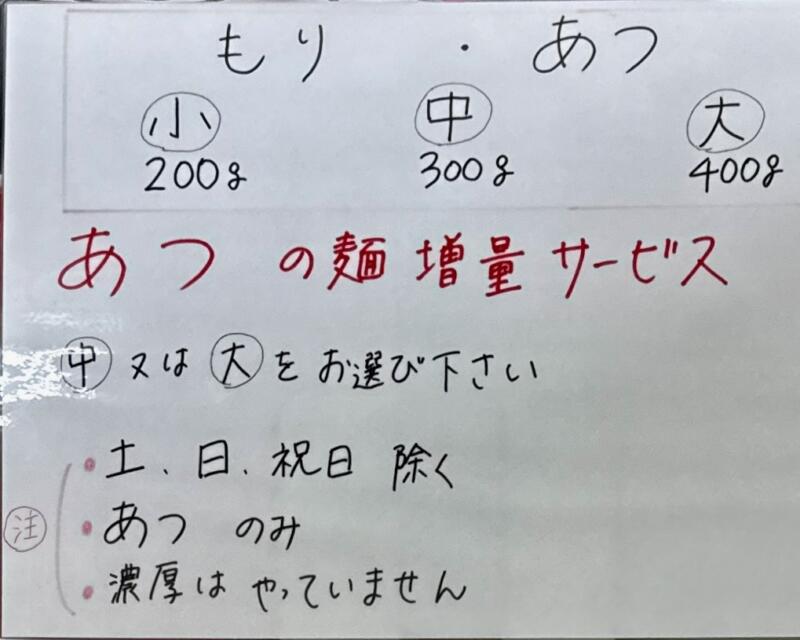 もり ・ あつ
小 中 大
200g 300g 400g
あつ の麺 増量 サービス
中 又は 大 を お選び下さい
注
・土、日、祝日 除く
・あつ のみ
・濃厚は やっていません